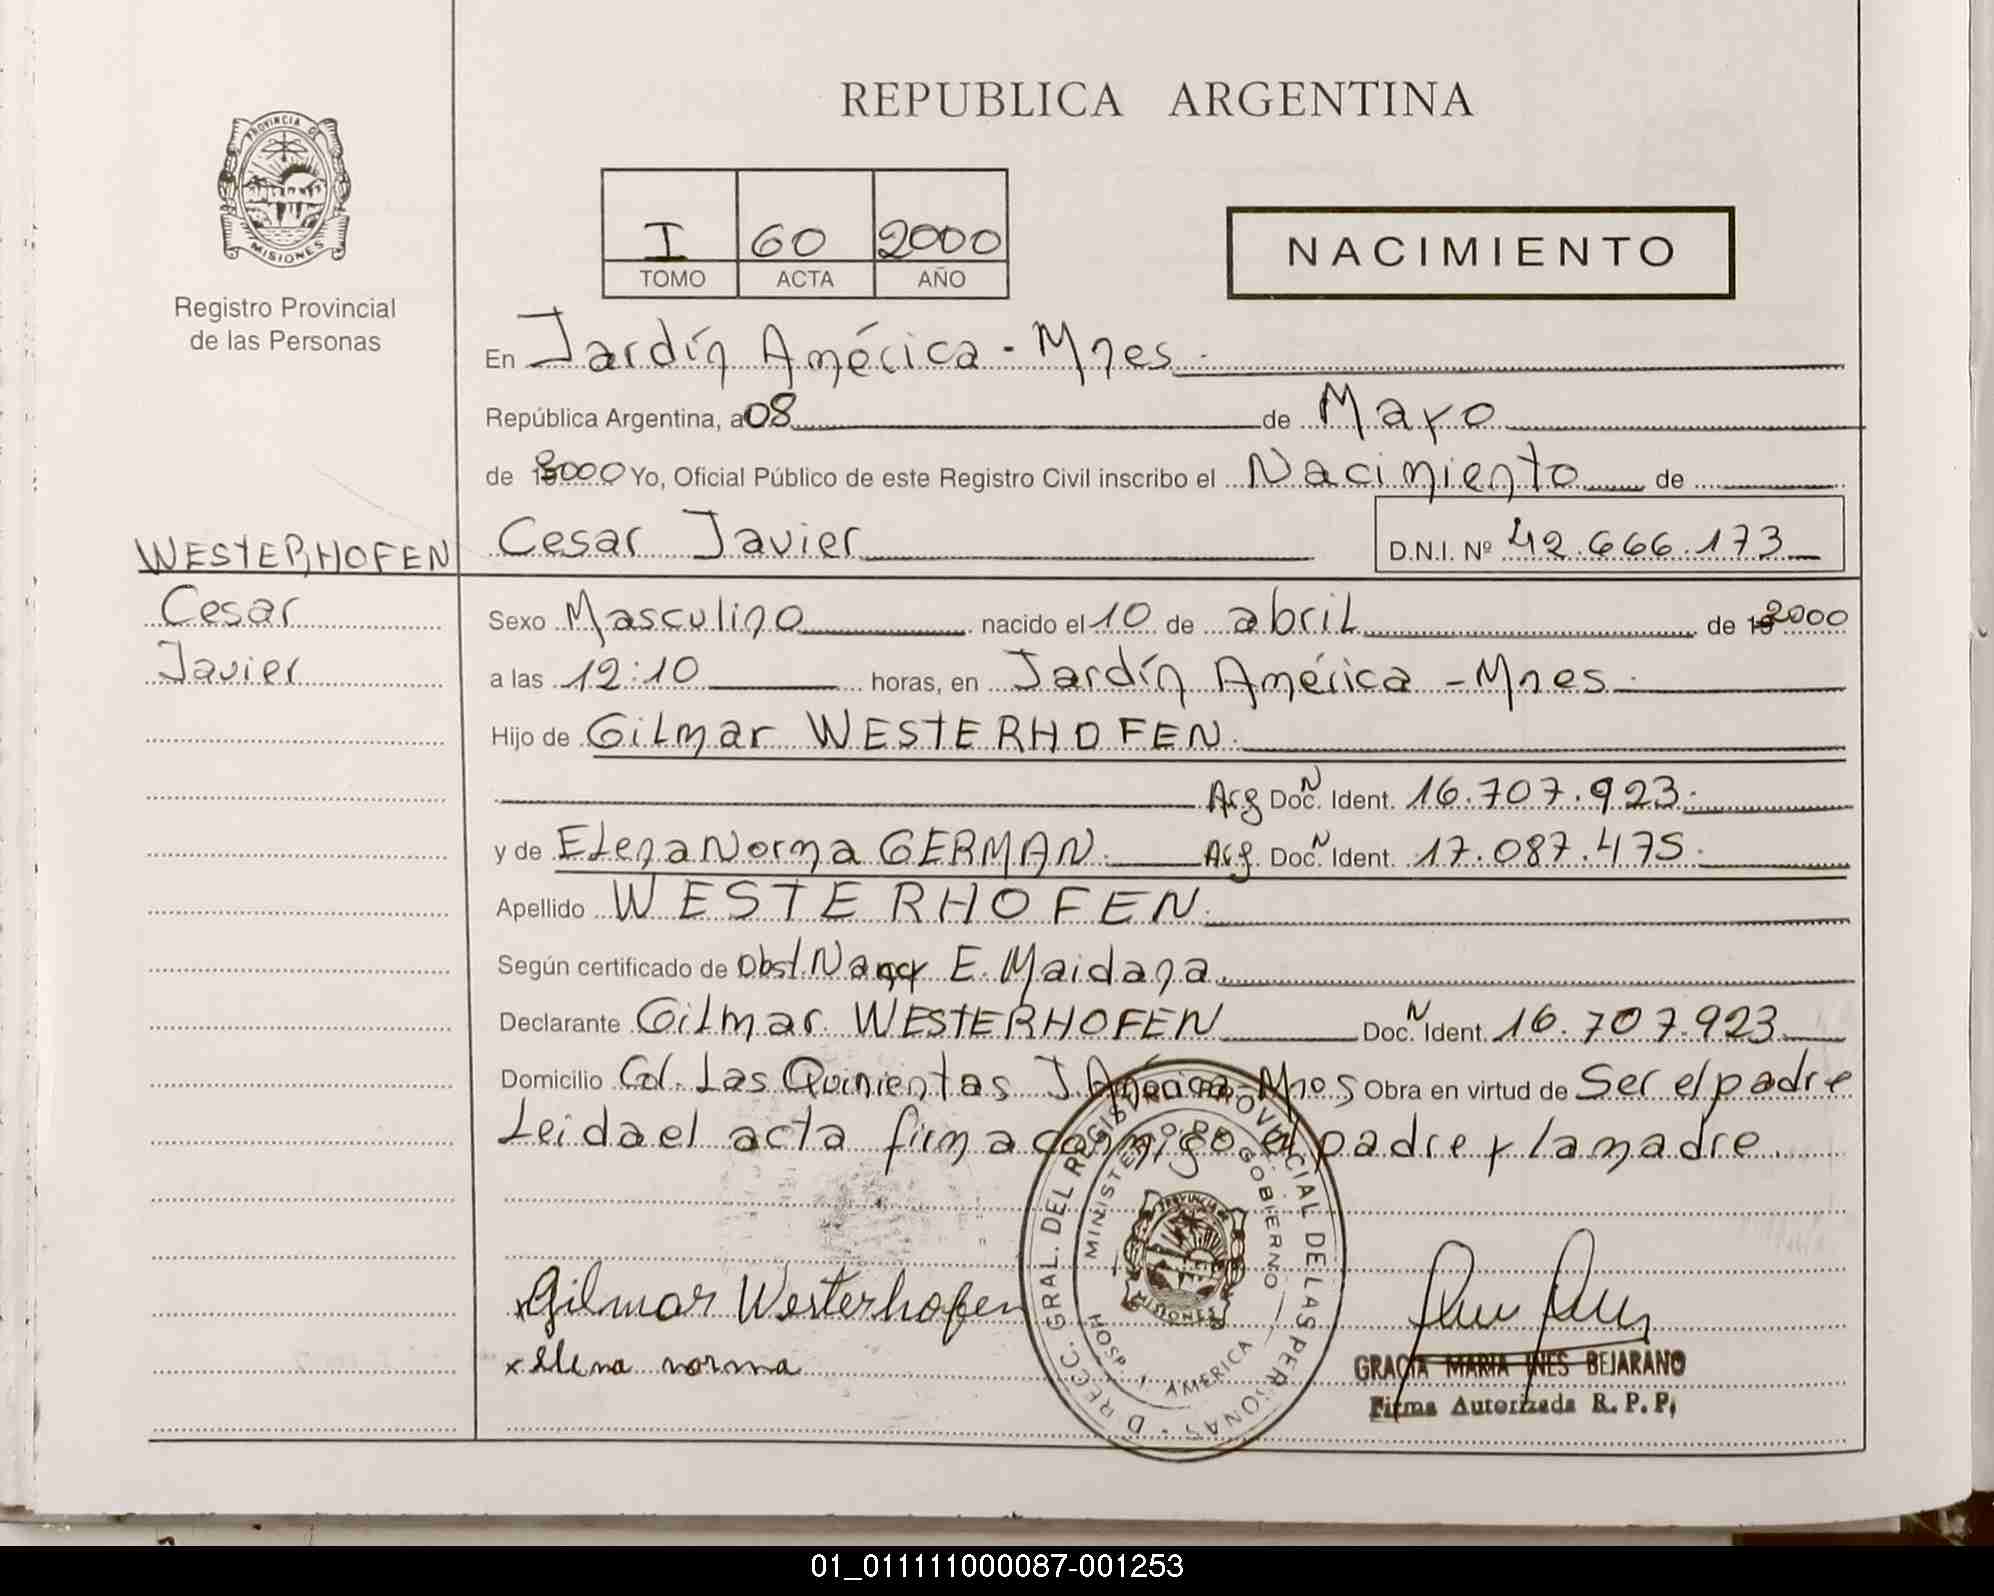 REPUBLICA ARGENTINA
PROVINCIA DE
MISIONES
Registro Provincial
de las Personas
I 60 2000
TOMO ACTA AÑO
NACIMIENTO
En Jardín América - Mnes.
República Argentina, a 08 de Mayo
de 2000 Yo, Oficial Público de este Registro Civil inscribo el Nacimiento de
Cesar Javier D.N.I. Nº 42.666.173
WESTERHOFEN
Cesar
Javier
Sexo Masculino nacido el 10 de abril de 2000
a las 12:10 horas, en Jardín América - Mnes.
Hijo de Gilmar WESTERHOFEN.
Arg Doc. N Ident. 16.707.923.
y de Elena Norma GERMAN. Arg. Doc. N Ident. 17.087.475.
Apellido WESTERHOFEN.
Según certificado de Obst. Nancy E. Maidana.
Declarante Gilmar WESTERHOFEN Doc. N Ident. 16.707.923
Domicilio Col. Las Quinientas J. América - Mnes Obra en virtud de Ser el padre
Leida el acta firma conmigo el padre y la madre.
DIRECC. GRAL. DEL REGISTRO PROVINCIAL DE LAS PERSONAS
MINISTERIO DE GOBIERNO
HOSP. J. AMERICA
PROVINCIA DE
MISIONES
x Gilmar Westerhofen
x Elena norma
GRACIA MARIA INES BEJARANO
Firma Autorizada R. P. P.
01_011111000087-001253